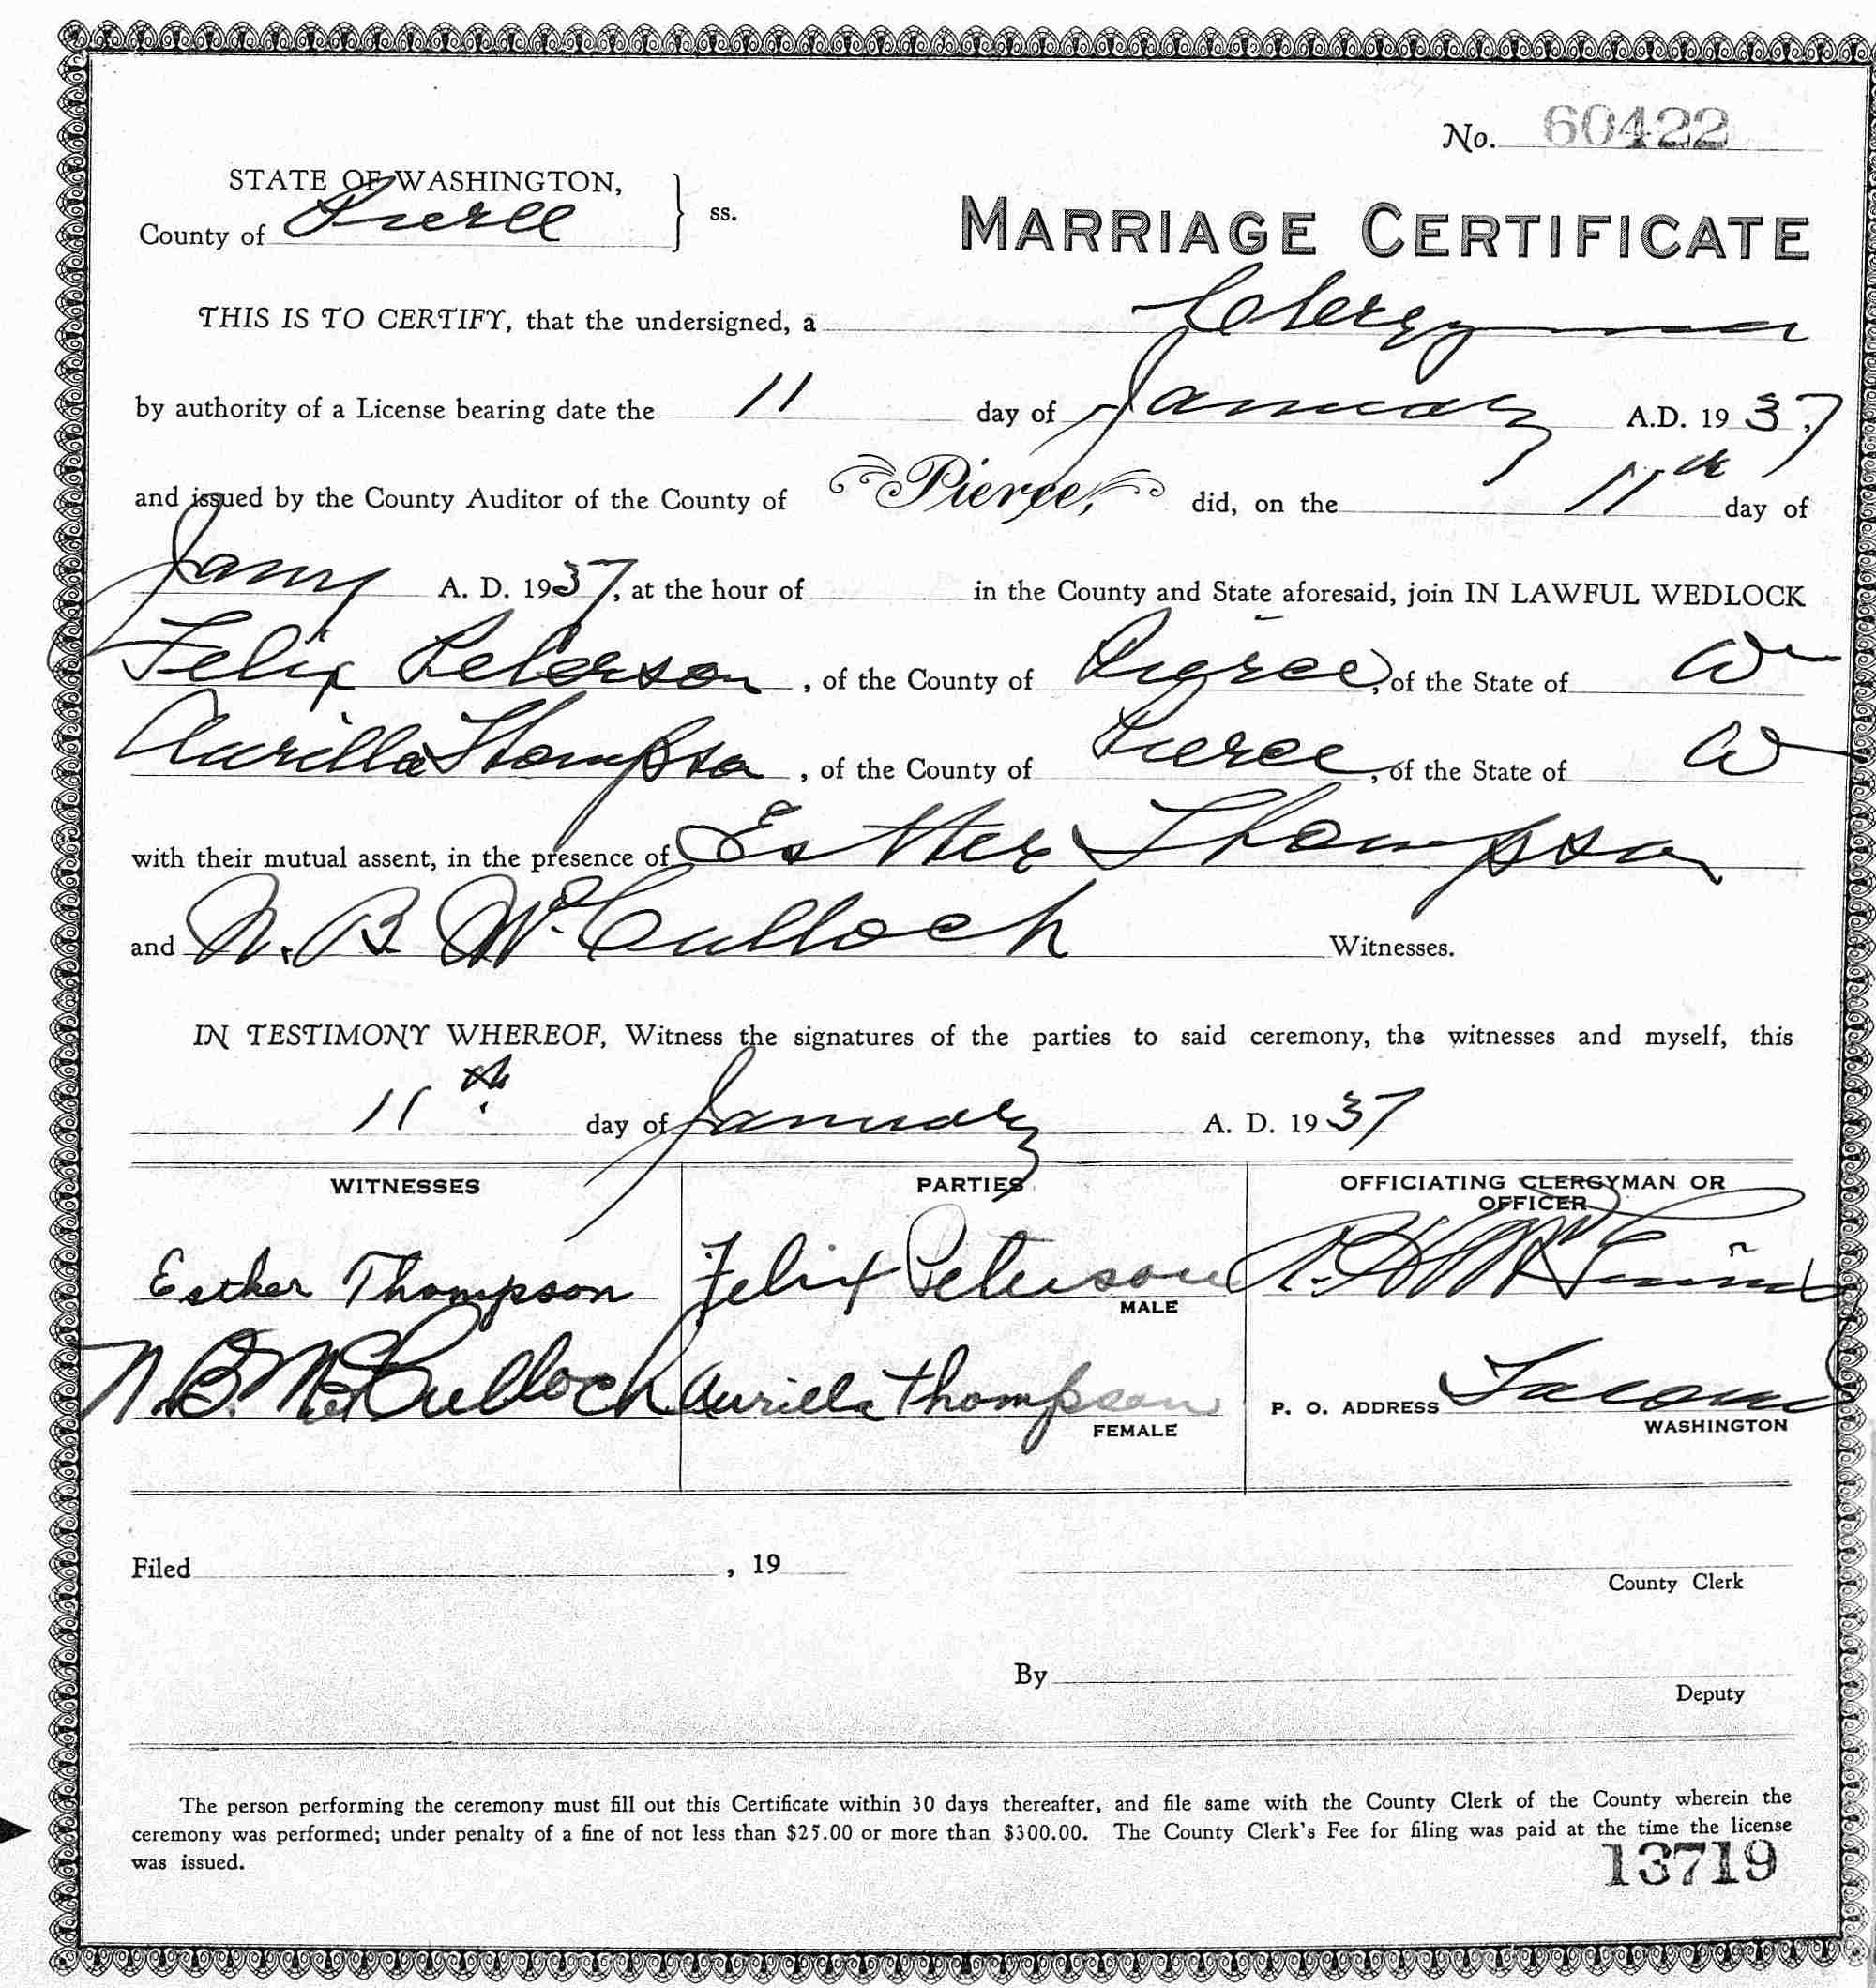 No. 60422
STATE OF WASHINGTON,
County of Pierce } ss.
MARRIAGE CERTIFICATE
THIS IS TO CERTIFY, that the undersigned, a Clergyman
by authority of a License bearing date the 11 day of January A.D. 1937,
and issued by the County Auditor of the County of Pierce, did, on the 11th day of
Jany A. D. 1937, at the hour of in the County and State aforesaid, join IN LAWFUL WEDLOCK
Felix Peterson, of the County of Pierce, of the State of Wn
Aurilla Thompson, of the County of Pierce, of the State of Wn
with their mutual assent, in the presence of Esther Thompson
and N. B. McCulloch Witnesses.
IN TESTIMONY WHEREOF, Witness the signatures of the parties to said ceremony, the witnesses and myself, this
11th day of January A. D. 1937
WITNESSES PARTIES OFFICIATING CLERGYMAN OR
OFFICER
Esther Thompson Felix Peterson
MALE
N. B. McCulloch Aurilla Thompson P. O. ADDRESS Tacoma
FEMALE WASHINGTON
Filed , 19
County Clerk
By
Deputy
The person performing the ceremony must fill out this Certificate within 30 days thereafter, and file same with the County Clerk of the County wherein the
ceremony was performed; under penalty of a fine of not less than $25.00 or more than $300.00. The County Clerk's Fee for filing was paid at the time the license
was issued.
13719